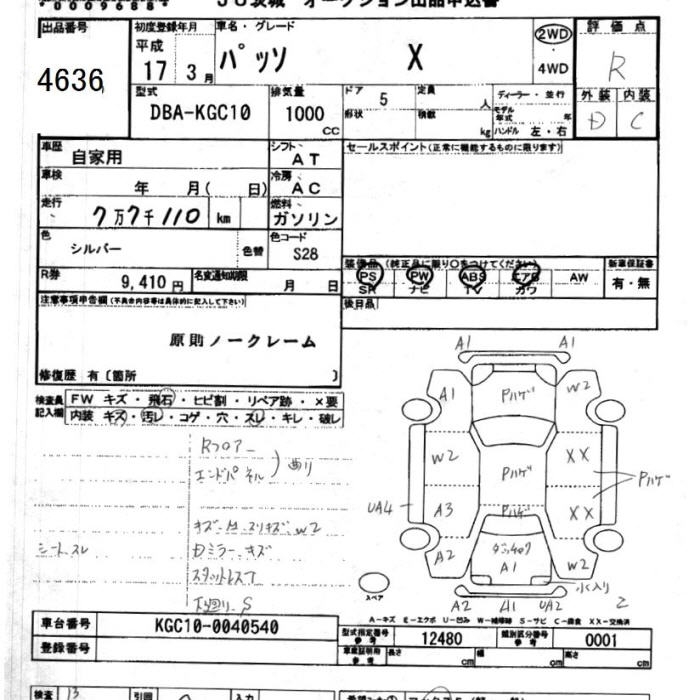 JU茨城 オークション出品申込書
出品番号
4636
初度登録年月
平成
17 3月
車名・グレード
パッソ X
2WD
4WD
評価点
R
外装 内装
D C
型式
DBA-KGC10
排気量
1000
CC
ドア 5
形状
定員 人
積載 kg
ディーラー・並行
モデル年式 年
ハンドル 左・右
車歴
自家用
シフト
AT
セールスポイント(正常に機能するものに限ります)
車検
年 月( 日)
冷房
AC
走行
7万7千110 km
燃料
ガソリン
色
シルバー
色替
色コード
S28
装備品(純正品に限り○をつけてください)
PS PW ABS エアB AW
SR ナビ TV カワ
新車保証書
有・無
R券
9,410円
名変通知期限
月 日
後日品
注意事項申告欄(不具合内容等は具体的に記入して下さい)
原則ノークレーム
修復歴 有〔箇所 〕
検査員記入欄
FW キズ・飛石・ヒビ割・リペア跡・×要
内装 キズ・汚レ・コゲ・穴・スレ・キレ・破レ
Rフロアー
エンドパネル
曲り
キズ・凹・スリキズ・W2
シートスレ
Dミラーキズ
スタットレス
下廻り S
A1 A1
A1 Pハゲ W2
W2 Pハゲ XX
Pハゲ
UA4 A3 Pハゲ XX
A2 A1 W2
水入り
スペア
A2 UA2
A-キズ E-エクボ U-凹み W-補修跡 S-サビ C-腐食 XX-交換済
車台番号
KGC10-0040540
登録番号
型式指定番号
参考
12480
類別区分番号
参考
0001
車庫証明用
参考
長さ cm 幅 cm 高さ cm
検査
引回
入力